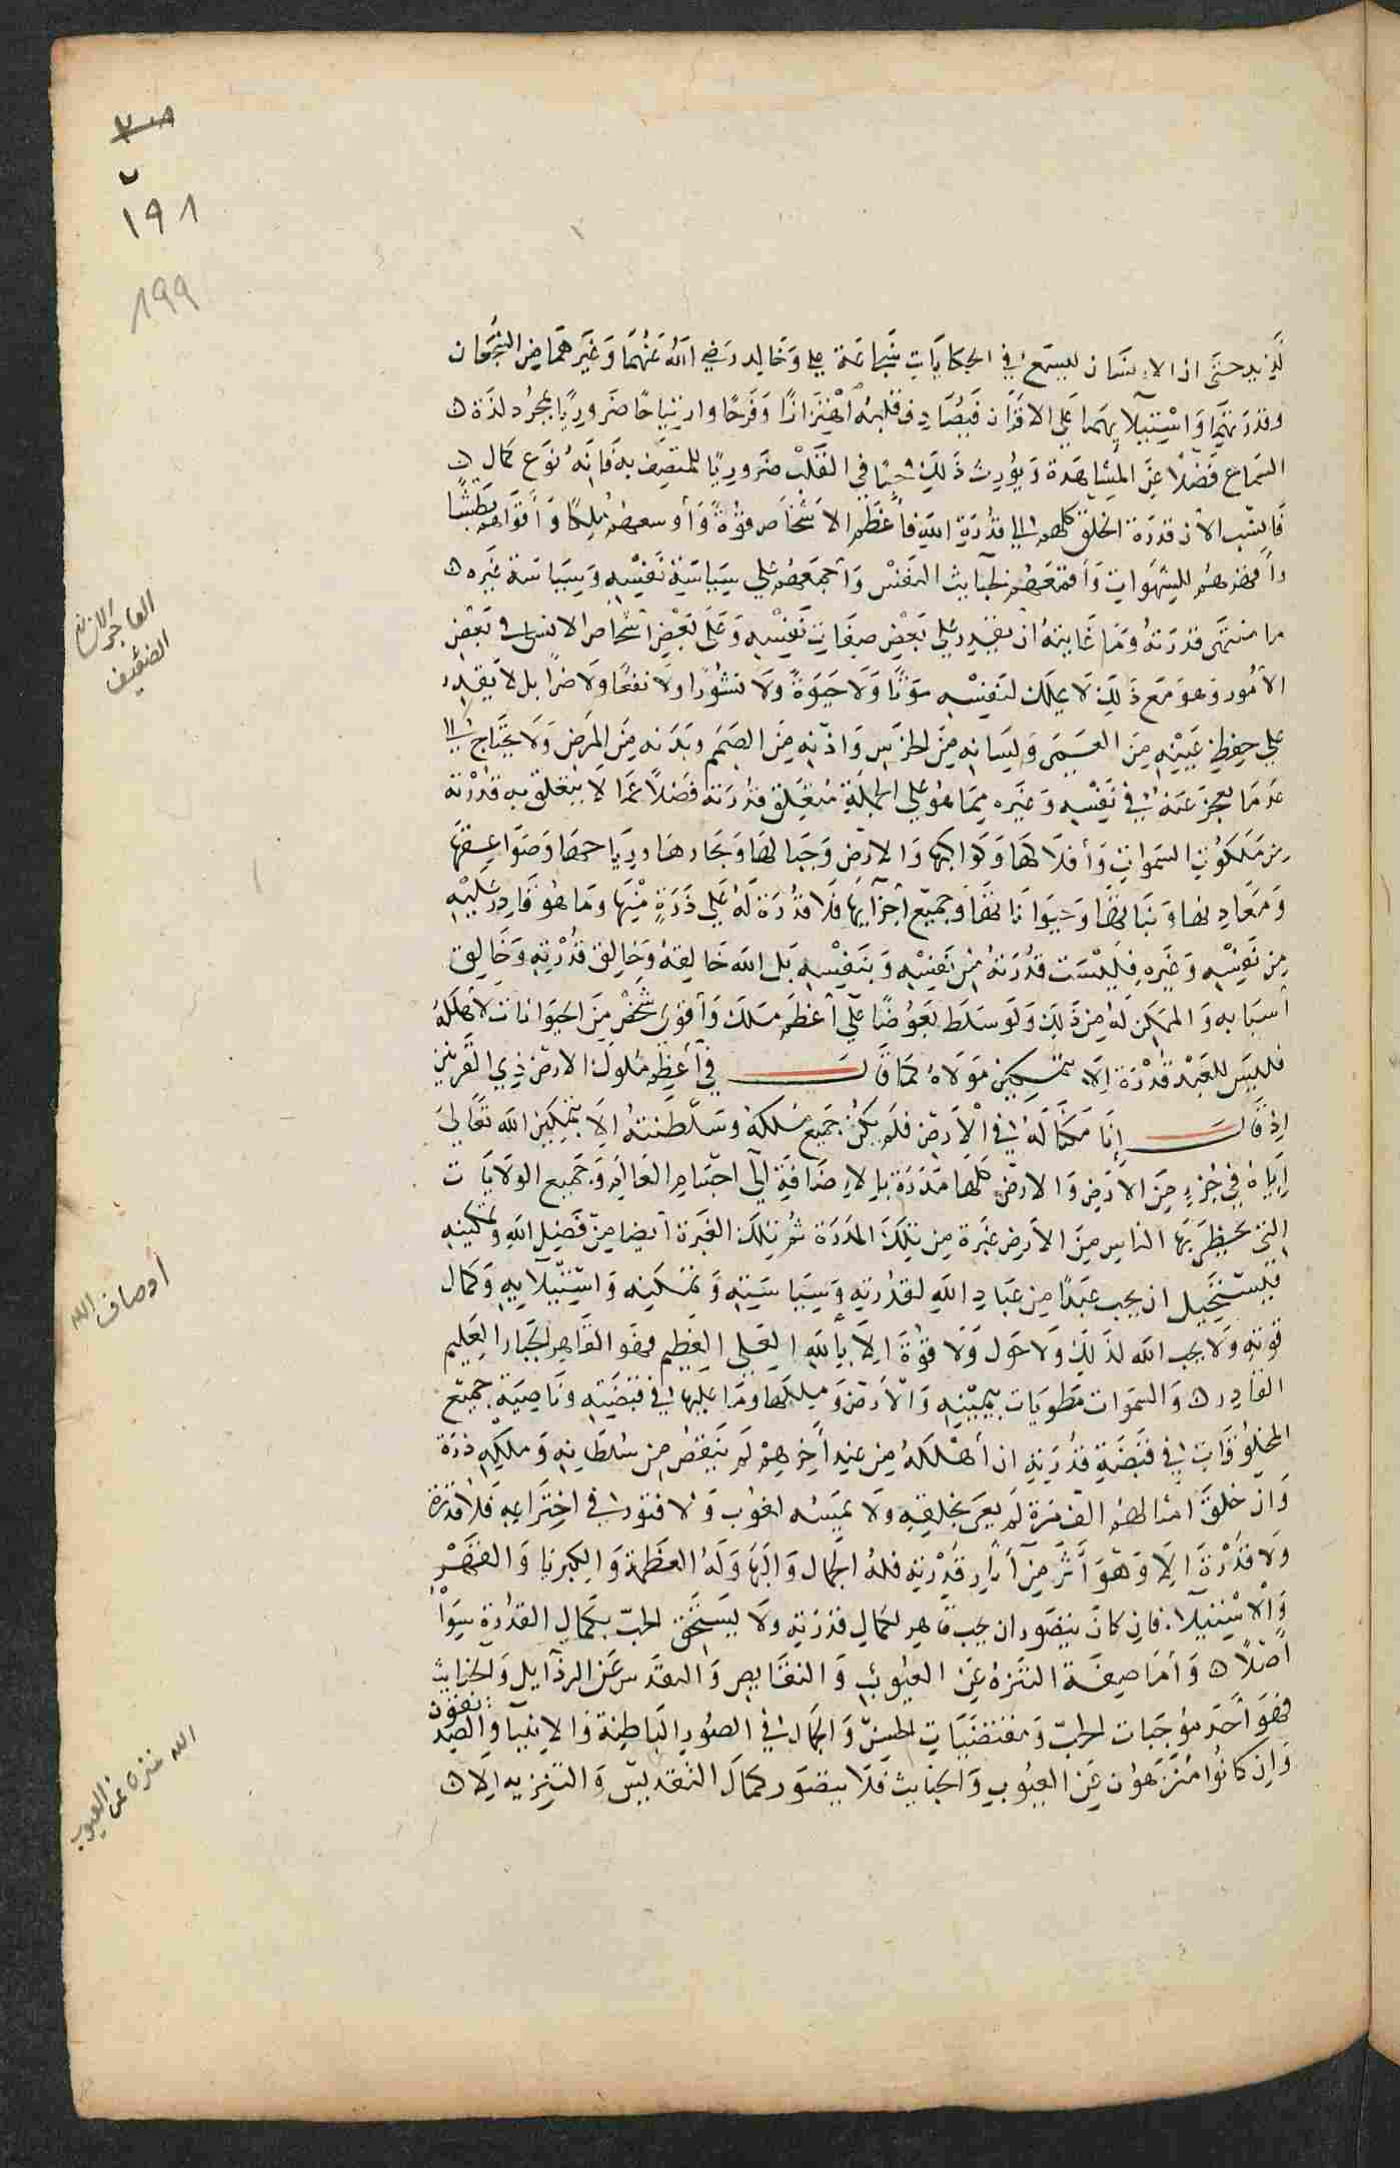 ١٩٨
١٩٩
لذيذ حتى ان الانسان ليسمع في الحكايات شجاعة علي وخالد رضي الله عنهما وغيرهما من الشجعان
وقدرتهما واستيلاءهما على الاقران فيصادف قلبه اهتزازا وفرحا وارتياحا ضروريا بمجرد لذة ه
السماع فضلا عن المشاهدة ويورث ذلك حبا في القلب ضروريا للمتصف به فانه نوع كمال ه
فانسب الآن قدرة الخلق كلهم الي قدرة الله فأعظم الاشخاص قوة وأوسعهم ملكا وأقواهم بطشا
وأقهرهم للشهوات وأقمعهم لخبايث النفس وأجمعهم علي سياسة نفسه وسياسة غيره ه
ما منتهى قدرته وما غايته ان يقدر علي بعض صفات نفسه وعلى بعض اشخاص الانس في بعض
الأمور وهو مع ذلك لا يملك لنفسه موتا ولا حيوة ولا نشورا ولا نفعا ولا ضرا بل لا يقدر
علي حفظ عينه من العمى ولسانه من الخرس واذنه من الصمم وبدنه من المرض ولا يحتاج الي
عد ما يعجز عنه في نفسه وغيره مما هو علي الجملة متعلق قدرته فضلا عما لا يتعلق به قدرته
من ملكوت السموات وأفلاكها وكواكبها والارض وجبالها وبحارها ورياحها وصواعقها
ومعادنها ونباتها وحيواناتها وجميع أجزآيها فلا قدرة له علي ذرة منها وما هو قادر عليه
من نفسه وغيره فليست قدرته من نفسه وبنفسه بل الله خالقه وخالق قدرته وخالق
أسبابه والممكن له من ذلك ولو سلط بعوضا على أعظم ملك وأقوى شخص من الحيوانات لأهلكه
فليس للعبد قدرة الا بتمكين مولاه كما قال في أعظم ملوك الارض ذي القرنين
اذ قال إنا مكنا له في الارض فلم يكن جميع ملكه وسلطنته الا بتمكين الله تعالي
إياه في جزء من الارض والارض كلها مدرة بالاضافة إلى اجسام العالم وجميع الولايات
التي يحظى بها الناس من الأرض غبرة من تلك المدرة ثم تلك الغبرة أيضا من فضل الله وتمكينه
فيستحيل ان يحب عبدا من عباد الله لقدرته وسياسته وتمكينه واستيلآيه وكمال
قوته ولا يحب الله لذلك ولا حول ولا قوة الا بالله العلي العظيم فهو القاهر الجبار العليم
القادر ه والسموات مطويات بيمينه والارض وملكها وما عليها في قبضته وناصية جميع
المخلوقات في قبضة قدرته ان أهلكهم من عند آخرهم لم ينقص من سلطانه وملكه ذرة
وان خلق امثالهم الف مرة لم يعي بخلقه ولا يمسه لغوب ولا فتور في اختراعه فلا قدرة
ولا قدرة الا وهو أثر من آثار قدرته فله الجمال والبها وله العظمة والكبريا والقهر
والاستيلآ. فان كان يتصور ان يحب قاهر لكمال قدرته ولا يستحق الحب بكمال القدرة سواه
أصلا ه وأما صفة التنزه عن العيوب والنقايص والتقدس عن الرذآيل والخبايث
فهو أحد موجبات الحب ومقتضيات الحسن والجمال في الصور الباطنة والانبيآ والصديقون
وان كانوا منزهون عن العيوب والخبايث فلا يتصور كمال التقديس والتنزيه الا ه
العاجز الانسان
الضعيف
أوصاف الله
الله منزه عن العيوب